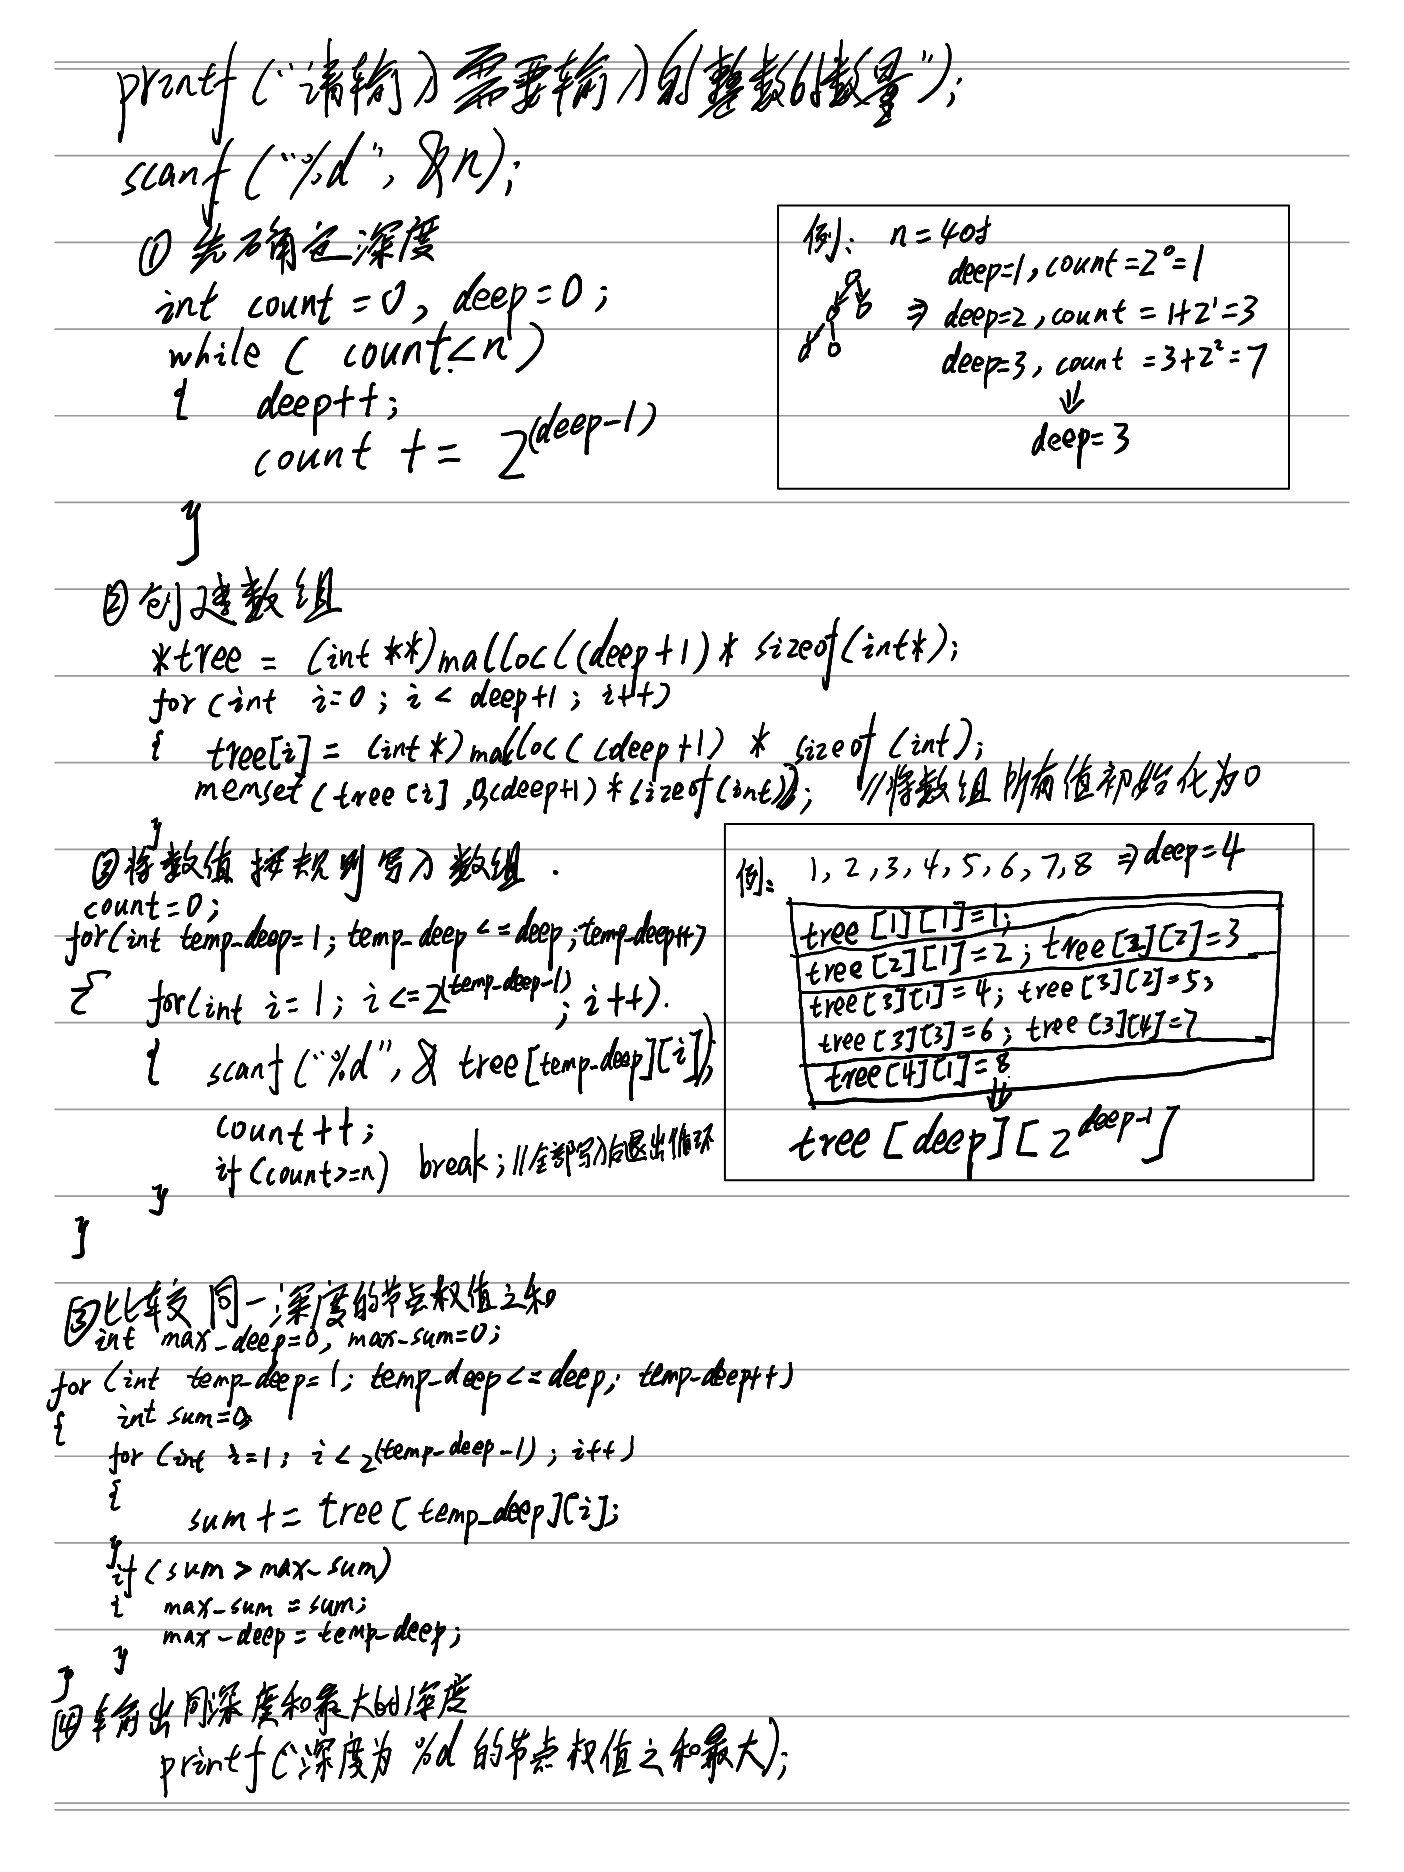 printf ("请输入需要输入的整数的数量");
scanf ("%d", &n);
① 先确定深度
int count = 0, deep = 0;
while ( count < n )
{ deep++;
count += 2^(deep-1)
}
例: n = 4时
deep=1, count = 2^0 = 1
⇒ deep=2, count = 1+2^1 = 3
deep=3, count = 3+2^2 = 7
⇓
deep = 3
② 创建数组
*tree = (int **)malloc((deep+1) * sizeof(int*);
for (int i=0; i < deep+1; i++)
{ tree[i] = (int*)malloc((deep+1) * sizeof(int);
memset(tree[i],0,(deep+1)*sizeof(int)); //将数组所有值初始化为0
}
③将数值按规则写入数组.
count=0;
for(int temp_deep=1; temp_deep <= deep; temp_deep++)
{ for(int i=1; i<=2^(temp_deep-1); i++).
{ scanf("%d", & tree[temp_deep][i]);
count++;
if (count>=n) break; //全部写入后退出循环
}
}
例: 1, 2, 3, 4, 5, 6, 7, 8 ⇒ deep = 4
tree[1][1]=1;
tree[2][1]=2; tree[2][2]=3
tree[3][1]=4; tree[3][2]=5;
tree[3][3]=6; tree[3][4]=7
tree[4][1]=8
⇓
tree[deep][2^deep-1]
③比较同一深度的节点权值之和
int max_deep=0, max-sum=0;
for (int temp_deep=1; temp_deep<=deep; temp-deep++)
{ int sum=0;
for (int i=1; i<2^(temp-deep-1); i++)
{
sum += tree[temp_deep][i];
}
if (sum > max-sum)
{ max-sum = sum;
max-deep = temp-deep;
}
}
④输出同深度和最大的深度
printf("深度为 %d 的节点权值之和最大);